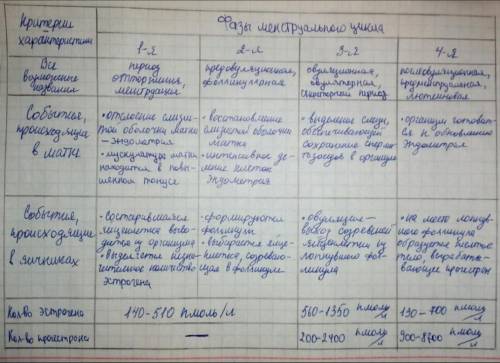 Критерии
характеристики
Фазы менструального цикла
1-я
2-я
3-я
4-я
Все
возможные
названия
период
отторжения,
менструация
предовуляционная,
фолликулярная
овуляционная,
овуляторная,
секреторный период
послеовуляционная,
предменструальная,
лютеиновая
События,
происходящие
в матке
•отслоение слизис-
той оболочки матки
—эндометрия
•мускулатура матки
находится в повы-
шенном тонусе
•восстановление
слизистой оболочки
матки
•интенсивное де-
ление клеток
эндометрия
•выделение слизи,
обеспечивающей
сохранение сперма-
тозоидов в организме
•организм готовит-
ся к обновлению
эндометрия
События,
происходящие
в яичниках
•состарившаяся
яйцеклетка выво-
дится из организма
•выделяется незна-
чительное количество
эстрогена
•формируются
фолликулы
•выбирается яйце-
клетка, созреваю-
щая в фолликуле
•овуляция—
выход созревшей
яйцеклетки из
лопнувшего фол-
ликула
•на месте лопнув-
шего фолликула
образуется желтое
тело, вырабаты-
вающее прогестерон
Кол-во эстрогена
140-510 пмоль/л
560-1350 пмоль/л
130-700 пмоль/л
Кол-во прогестерона
—
200-2400 пмоль/л
900-8700 пмоль/л